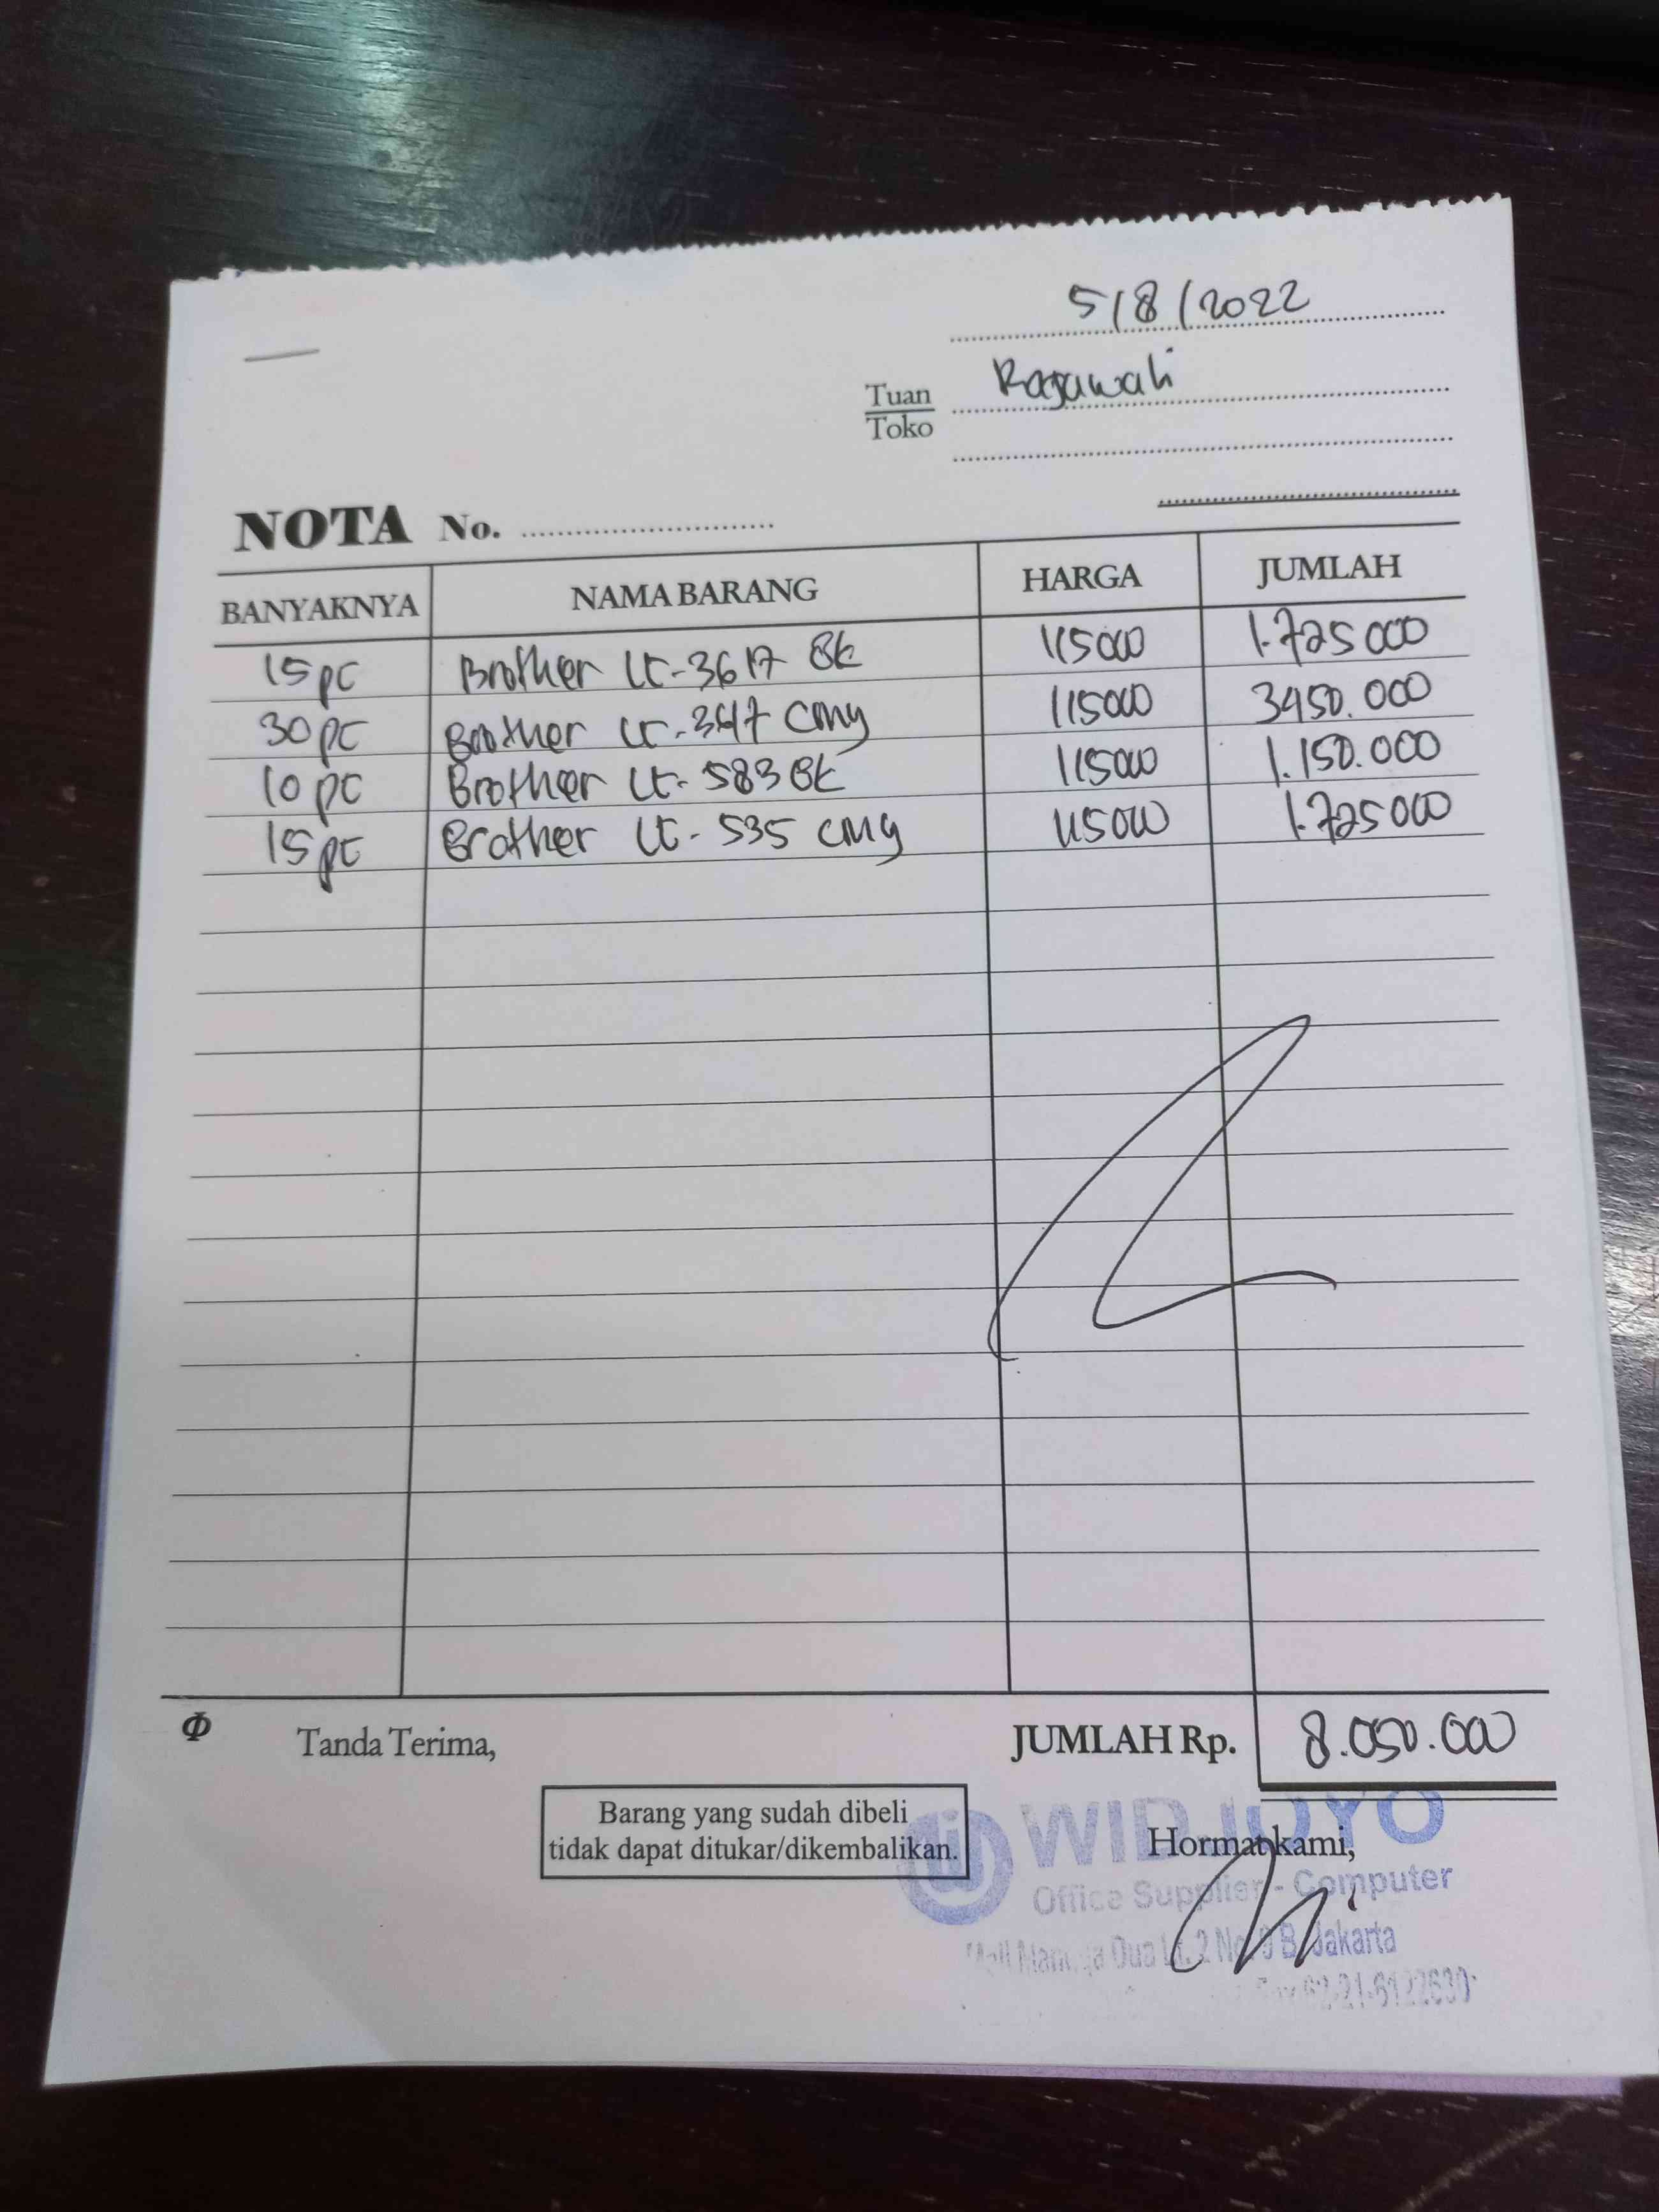 5/8/2022
Tuan Rajawali
Toko
NOTA No.
BANYAKNYA NAMA BARANG HARGA JUMLAH
15 pc Brother LC-3617 BK 115000 1.725000
30 pc Brother LC-3617 CMY 115000 3450.000
10 pc Brother LC-583 BK 115000 1.150.000
15 pc Brother LC-535 CMY 115000 1.725000
Tanda Terima, JUMLAH Rp. 8.050.000
Barang yang sudah dibeli
tidak dapat ditukar/dikembalikan.
Hormat kami,
WIDJOYO
Office Supplier - Computer
Mall Mangga Dua Lt. 2 No. B Jakarta